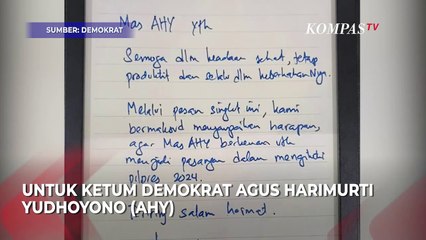 SUMBER: DEMOKRAT
KOMPAS TV
Mas AHY yth
Semoga dlm keadaan sehat, tetap
produktif dan selalu dlm keberkahanNya.
Melalui pesan singkat ini, kami
bermaksud menyampaikan harapan,
agar Mas AHY berkenan utk
menjadi pasangan dalam mengikuti
pilpres 2024.
UNTUK KETUM DEMOKRAT AGUS HARIMURTI
YUDHOYONO (AHY)
salam hormat.